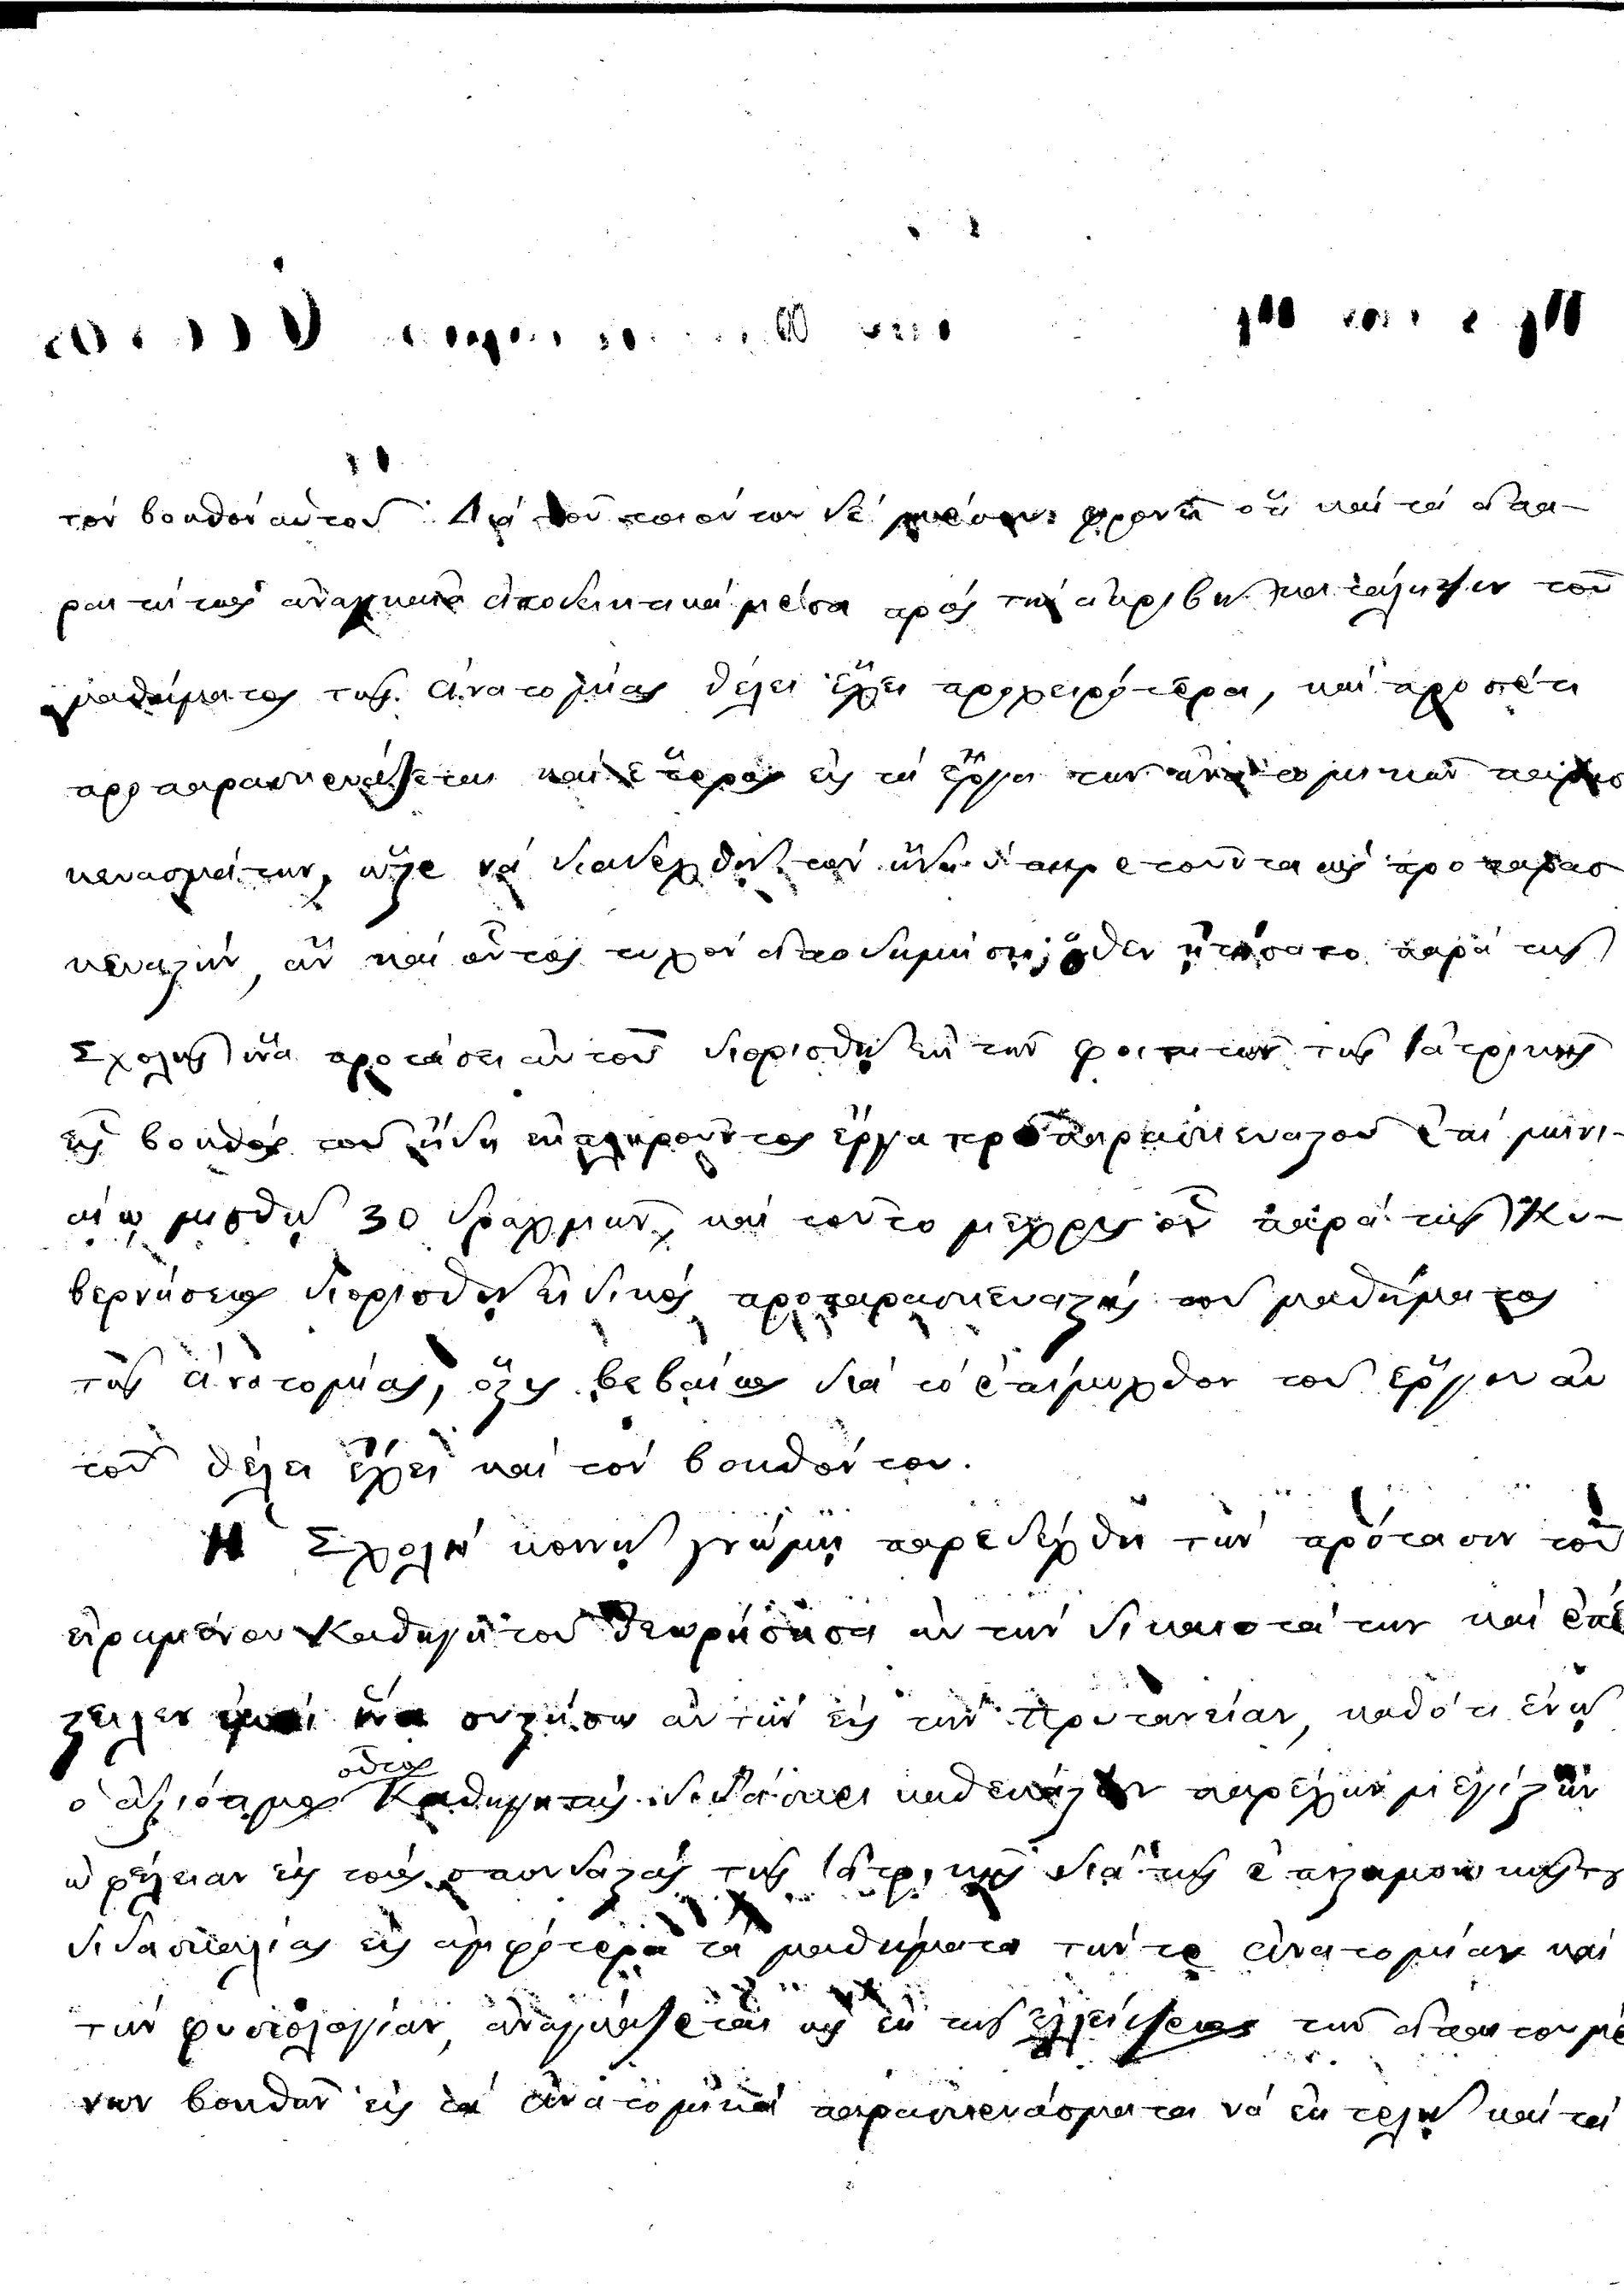 τὸν βοηθὸν αὐτοῦ. Διὰ τοῦ τοιούτου δὲ μέσου φρονεῖ ὅτι καὶ τὰ ἀπα-
ραιτήτως ἀναγκαῖα ἀποδεικτικὰ μέσα πρὸς τὴν ἀκριβῆ κατάληψιν τοῦ
μαθήματος τῆς ἀνατομίας θέλει ἔχει προχειρότερα, καὶ προσέτι
προπαρασκευάζεται καὶ ἕτερος εἰς τὰ ἔργα τῶν ἀνατομικῶν παρασ
κευασμάτων, ὥστε νὰ διαδεχθῇ τὸν ἤδη ὑπηρετοῦντα ὡς προπαρασ
κευαστήν, ἂν καὶ οὗτος τυχὸν ἀποδημήσῃ; ὅθεν ᾐτήσατο παρὰ τῆς
Σχολῆς ἵνα προτάσει αὐτοῦ διορισθῇ ἐκ τῶν φοιτητῶν τῆς Ἰατρικῆς
εἷς βοηθὸς τοῦ ἤδη ἐκπληροῦντος ἔργα προπαρασκευαστοῦ ἐπὶ μηνι-
αίῳ μισθῷ 30 δραχμῶν, καὶ τοῦτο μέχρις οὗ παρὰ τῆς Κυ-
βερνήσεως διορισθῇ εἰδικὸς προπαρασκευαστὴς τοῦ μαθήματος
τῆς ἀνατομίας, ὅστις βεβαίως διὰ τὸ ἐπίμοχθον τοῦ ἔργου αὐ
τοῦ θέλει ἔχει καὶ τὸν βοηθόν του.
Ἡ Σχολὴ κοινῇ γνώμῃ παρεδέχθη τὴν πρότασιν τοῦ
εἰρημένου Καθηγητοῦ θεωρήσασα αὐτὴν δικαιοτάτην καὶ ἐπέ
στειλεν ἐμοὶ ἵνα συστήσω αὐτὴν εἰς τὴν Πρυτανείαν, καθότι ἐνῷ
ὁ ἀξιότιμος οὗτος Καθηγητὴς διδάσκει καθεκάστην παρέχων μεγίστην
ὠφέλειαν εἰς τοὺς σπουδαστὰς τῆς Ἰατρικῆς διὰ τῆς ἐπιστημονικῆς του
διδασκαλίας εἰς ἀμφότερα τὰ μαθήματα τήν τε ἀνατομίαν καὶ
τὴν φυσιολογίαν, ἀναγκάζεται ὡς ἐκ τῆς ἐλλείψεως τῶν ἀπαιτουμέ
νων βοηθῶν εἰς τὰ ἀνατομικὰ παρασκευάσματα νὰ ἐκτελῇ καὶ τὰ